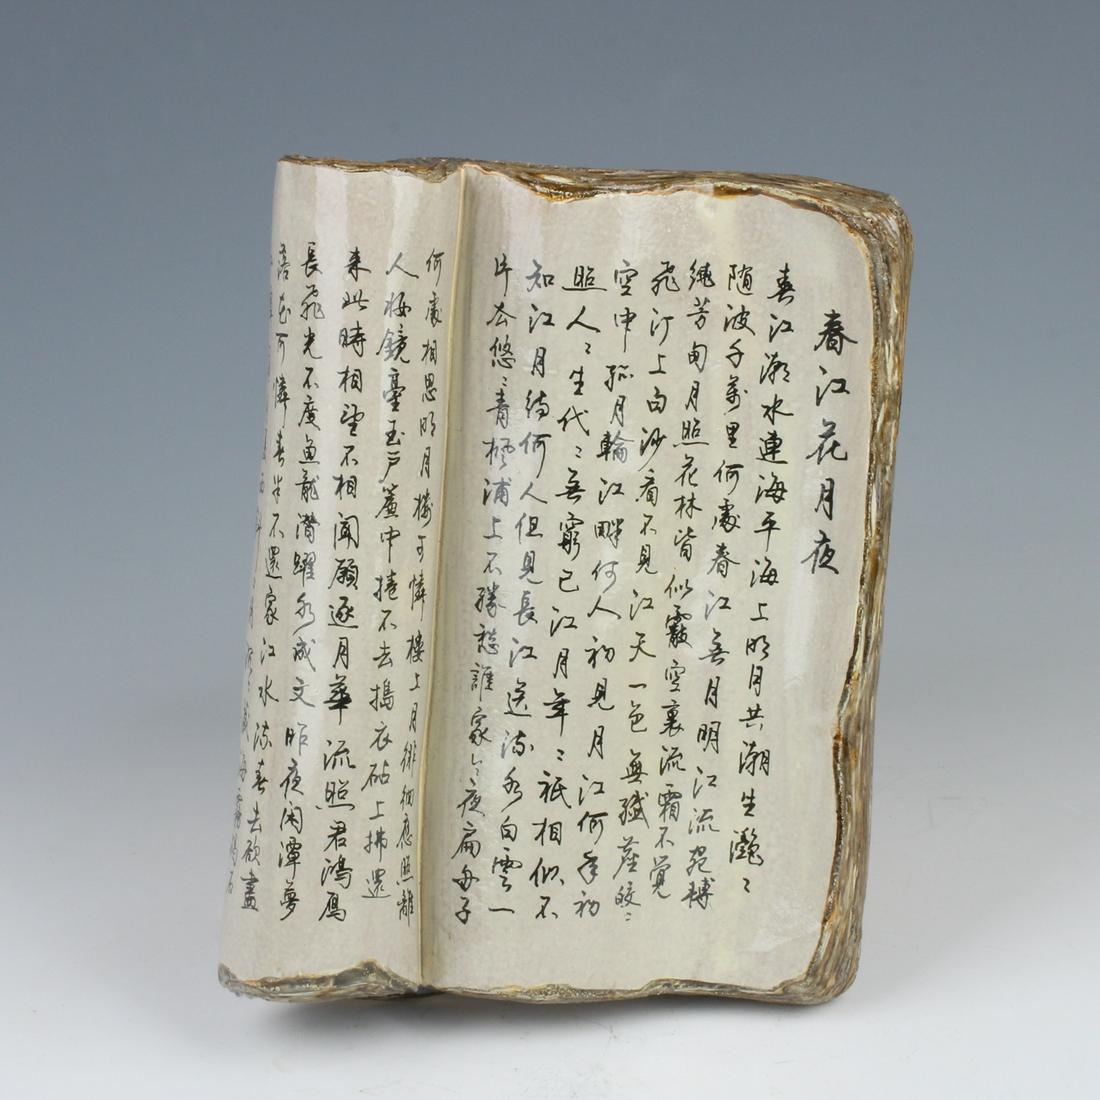 春江花月夜
春江潮水連海平海上明月共潮生灔〻
随波千萬里何處春江無月明江流宛轉
繞芳甸月照花林皆似霰空裏流霜不覺
飛汀上白沙看不見江天一色無纖塵皎〻
空中孤月輪江畔何人初見月江何年初
照人〻生代〻無窮已江月年〻祇相似不
知江月待何人但見長江送流水白雲一
片去悠〻青楓浦上不勝愁誰家今夜扁舟子
何處相思明月樓可憐樓上月徘徊應照離
人妝鏡臺玉戶簾中捲不去搗衣砧上拂還
来此時相望不相聞願逐月華流照君鴻鴈
長飛光不度魚龍潛躍水成文昨夜闲潭夢
落花可憐春半不還家江水流春去欲盡